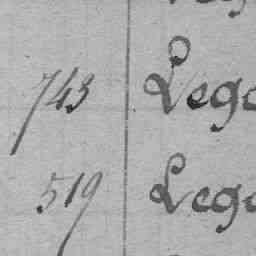 743 Lego
519 Lego